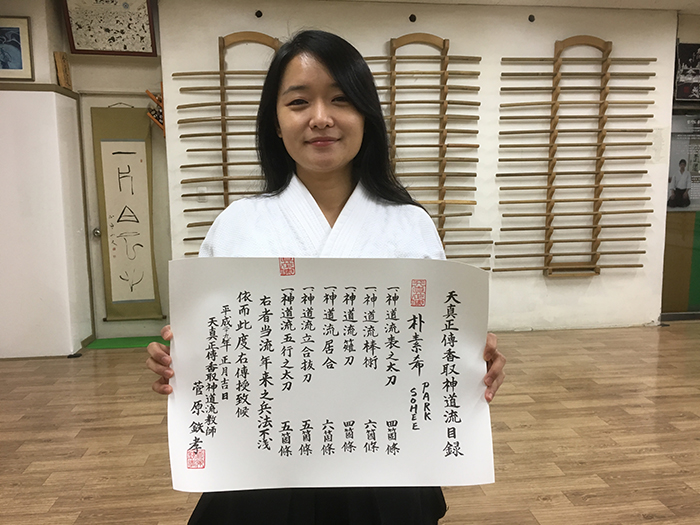 天真正傳香取神道流目録
朴素希
PARK
SOHEE
一神道流表之太刀 四箇條
一神道流棒術 六箇條
一神道流薙刀 四箇條
一神道流居合 六箇條
一神道流立合抜刀 五箇條
一神道流五行之太刀 五箇條
右者当流年来之兵法不浅
依而此度右傳授致候
平成 年正月吉日
天真正傳香取神道流教師
菅原鉄孝